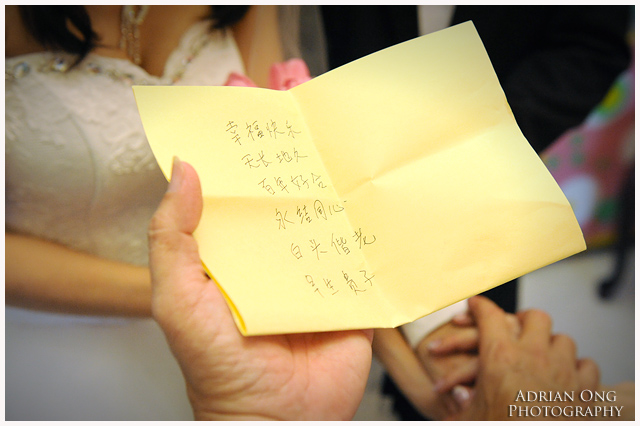 幸福快乐
天长地久
百年好合
永结同心
白头偕老
早生贵子
ADRIAN ONG
PHOTOGRAPHY